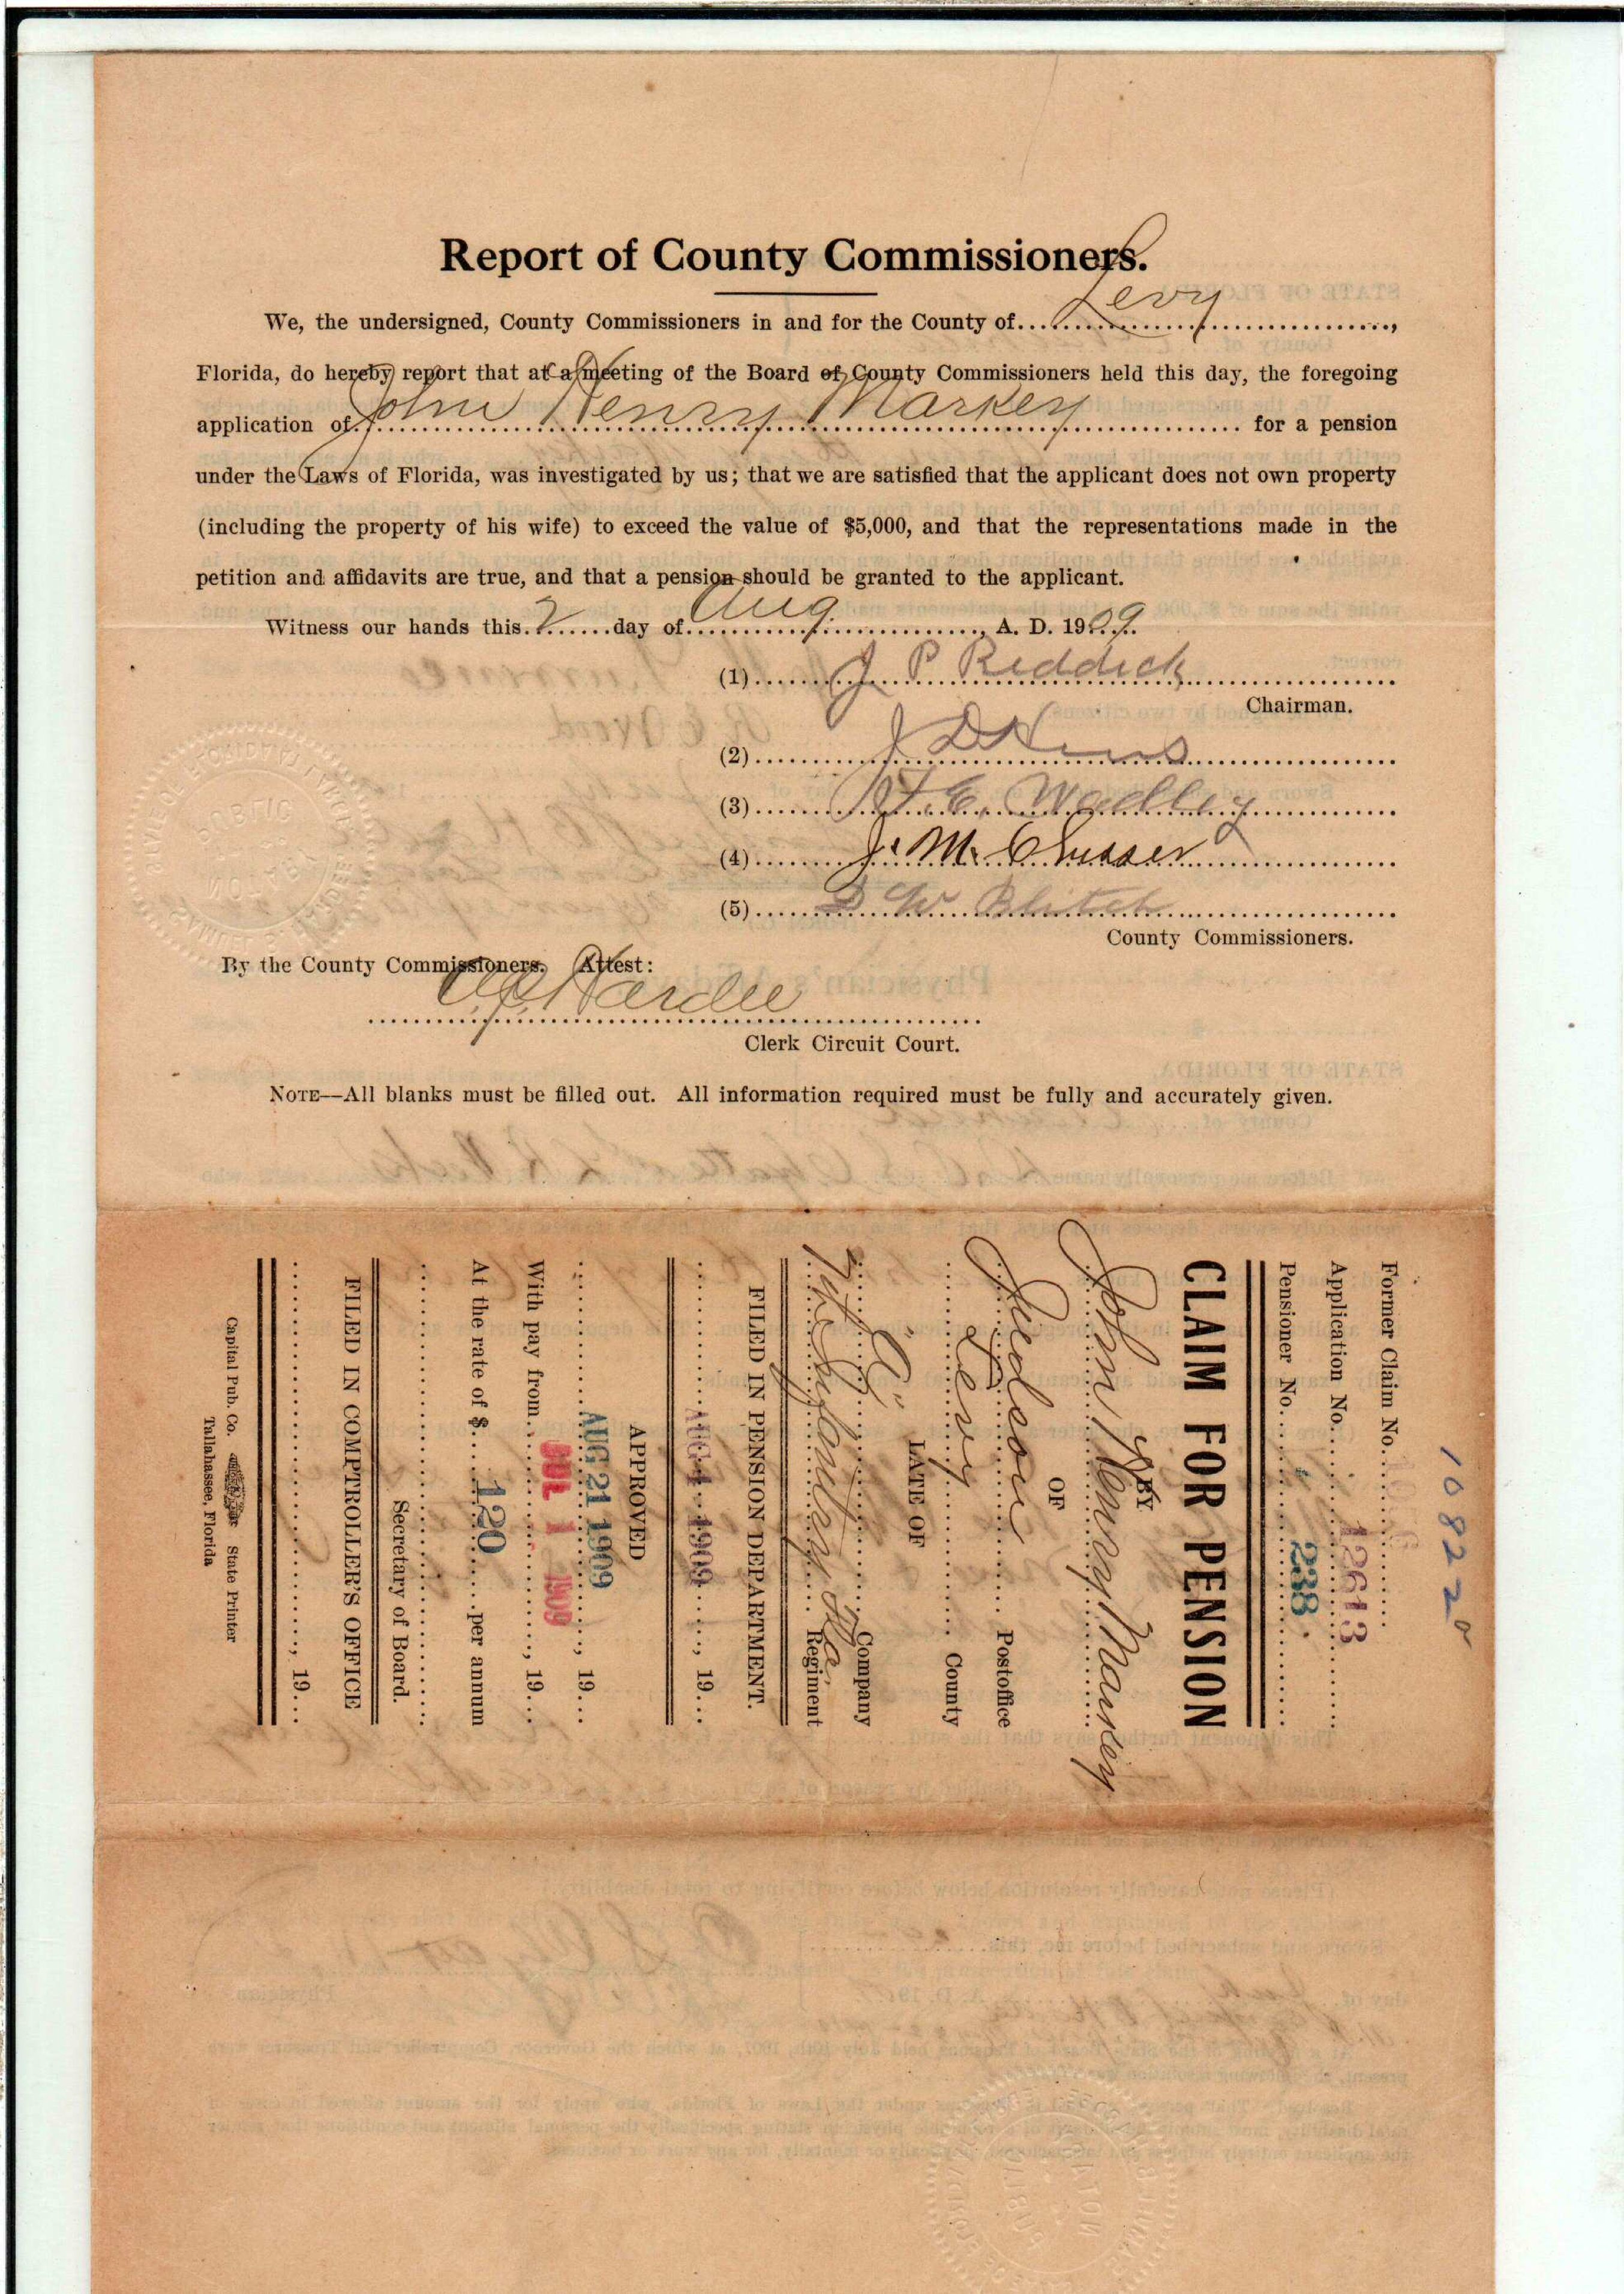 Report of County Commissioners.
We, the undersigned, County Commissioners in and for the County of Levy,
Florida, do hereby report that at a meeting of the Board of County Commissioners held this day, the foregoing
application of John Henry Markey for a pension
under the Laws of Florida, was investigated by us; that we are satisfied that the applicant does not own property
(including the property of his wife) to exceed the value of $5,000, and that the representations made in the
petition and affidavits are true, and that a pension should be granted to the applicant.
Witness our hands this 2 day of Aug, A. D. 1909.
(1) J P Reddick
Chairman.
(2) J D
(3) E. Wadley
(4) J. M.
(5) D W Blitch
County Commissioners.
By the County Commissioners. Attest:
Hardee
Clerk Circuit Court.
NOTE—All blanks must be filled out. All information required must be fully and accurately given.
10822
Former Claim No.
Application No. 12613
Pensioner No. 238
CLAIM FOR PENSION
BY
John Henry Markey
OF
Judson Postoffice
Levy County
LATE OF
"C" Company
7th Infantry Fla Regiment
FILED IN PENSION DEPARTMENT.
AUG 4 1909, 19
APPROVED
AUG 21 1909, 19
With pay from JUL 1 1909, 19
At the rate of $ 120 per annum
Secretary of Board.
FILED IN COMPTROLLER'S OFFICE
, 19
Capital Pub. Co. State Printer
Tallahassee, Florida